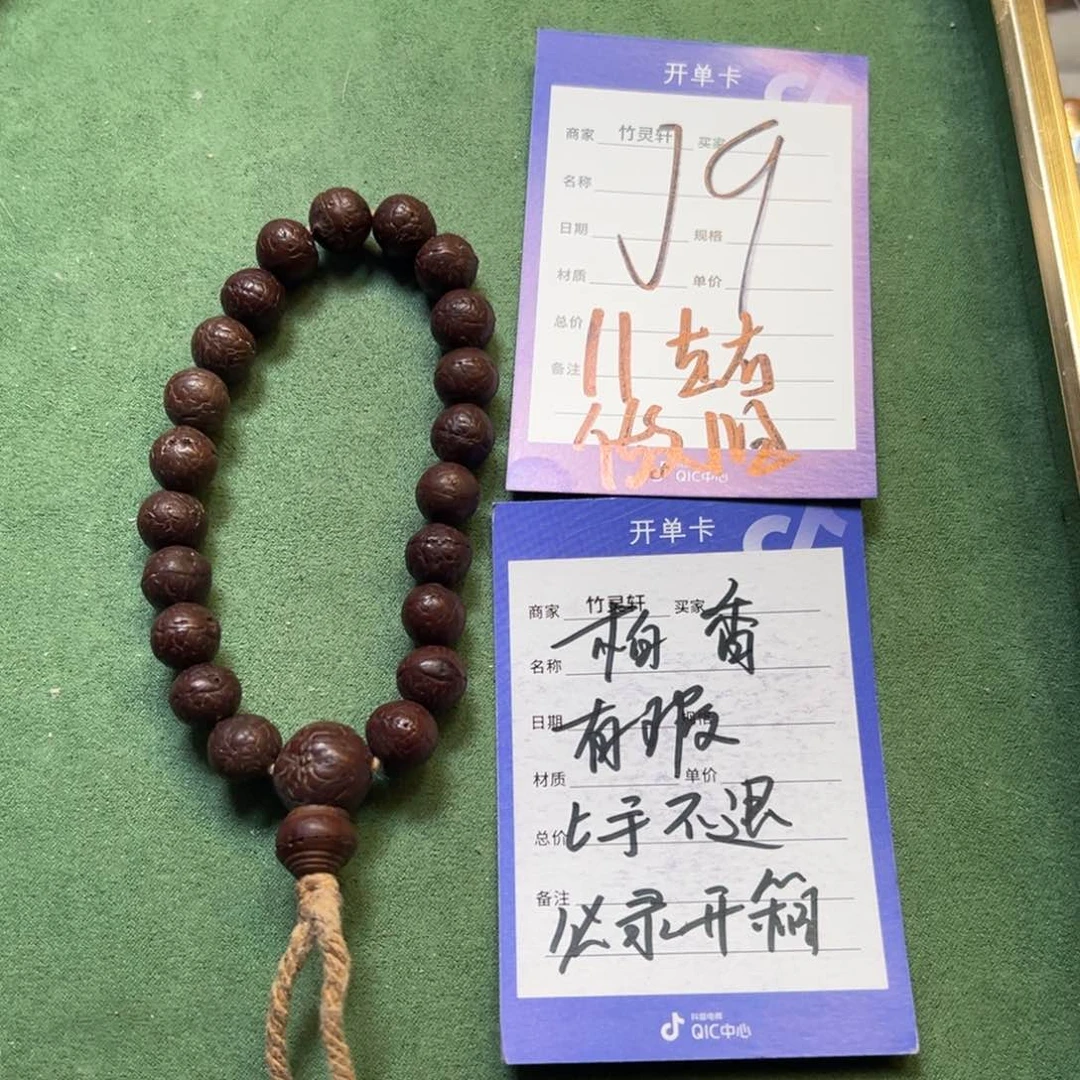 开单卡
商家 竹灵轩 买家
J9
名称
日期 规格
材质 单价
总价
备注 11左右
微瑕
QIC中心
开单卡
商家 竹灵轩 买家
柏香
名称
有瑕
日期
材质 单价
上手不退
总价
备注
必录开箱
抖音电商
QIC中心